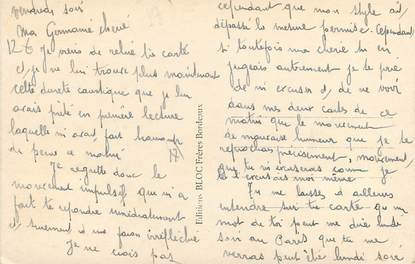 Vendredi soir
Ma Germaine chérie
Je viens de relire ta carte
et je ne lui trouve plus maintenant
cette dureté caustique que je lui
avais prêté en première lecture
laquelle m'avait fait beaucoup
de peine ce matin
Je regrette donc le
mouvement impulsif qui m'a
fait te répondre immédiatement
et sûrement d'une façon irréfléchie
Je ne crois pas
Editions BLOC Frères Bordeaux
cependant que mon style ait
dépassé la mesure permise. Cependant
si toutefois ma chérie tu en
jugeais autrement je te prie
de m'excuser et de ne voir
dans mes deux cartes de ce
matin que le mouvement
de mauvaise humeur que je te
reprochais précisément, mouvement
que tu m'excuseras comme je
moi même
Tu me laisses d'ailleurs
entendre sur ta carte qu'un
mot de toi peut me dire lundi
soir au que tu me
verras peut être lundi soir